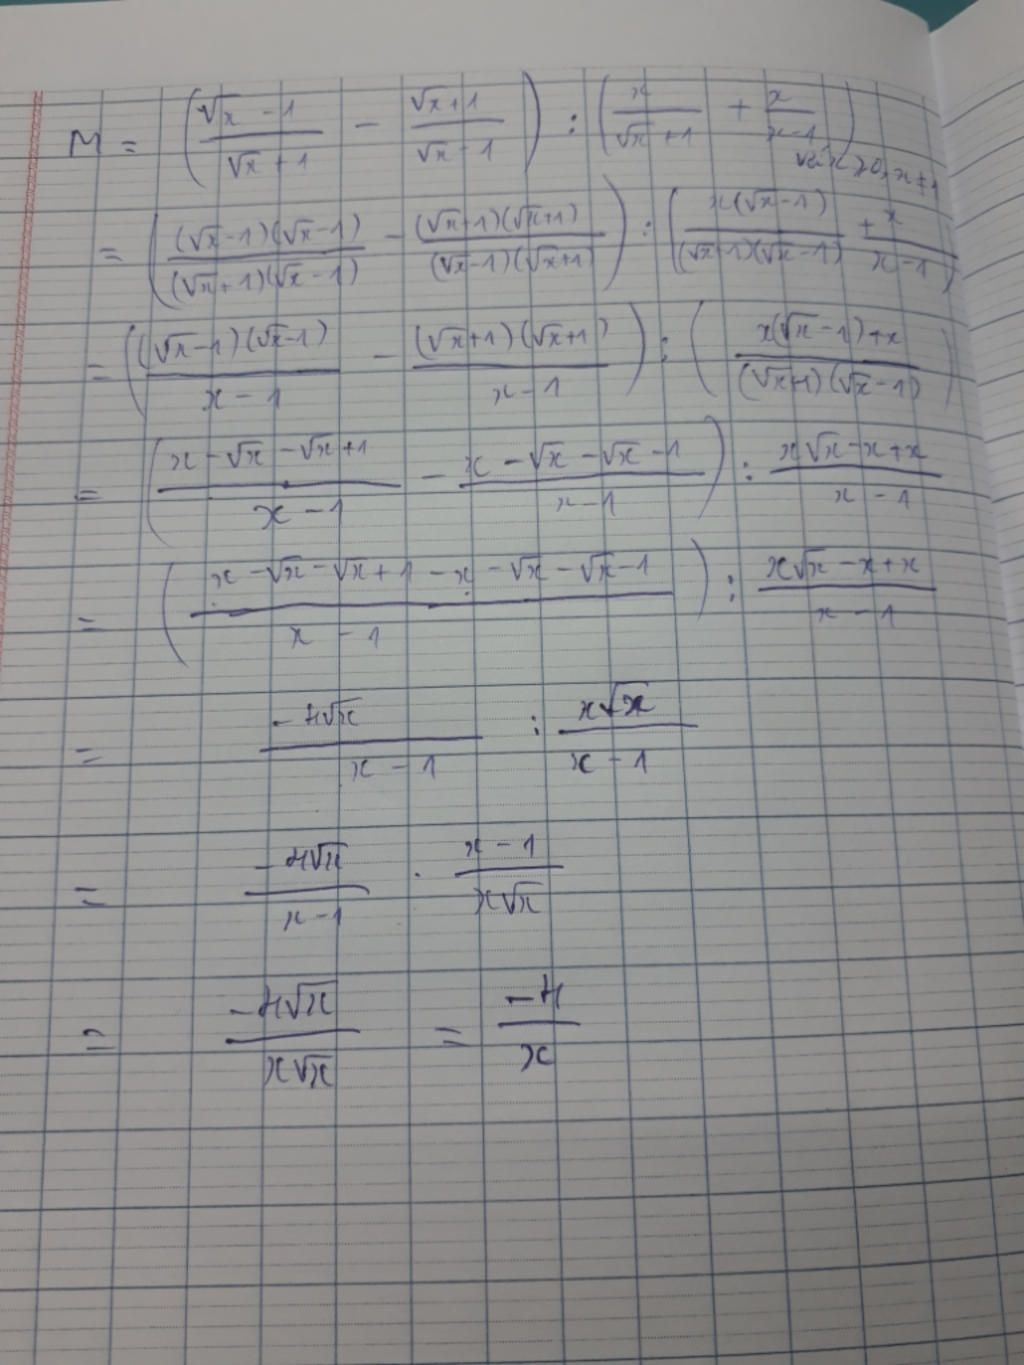 M = ( (√x - 1)/(√x + 1) - (√x + 1)/(√x - 1) ) : ( x/(√x + 1) + x/(x - 1) )
với x > 0, x ≠ 1
= ( (√x - 1)(√x - 1)/(√x + 1)(√x - 1) - (√x + 1)(√x + 1)/(√x - 1)(√x + 1) ) : ( x(√x - 1)/(√x + 1)(√x - 1) + x/(x - 1) )
= ( (√x - 1)(√x - 1)/(x - 1) - (√x + 1)(√x + 1)/(x - 1) ) : ( (x(√x - 1) + x)/(√x + 1)(√x - 1) )
= ( (x - √x - √x + 1)/(x - 1) - (x - √x - √x - 1)/(x - 1) ) : (x√x - x + x)/(x - 1)
= ( (x - √x - √x + 1 - x - √x - √x - 1)/(x - 1) ) : (x√x - x + x)/(x - 1)
= -4√x/(x - 1) : x√x/(x - 1)
= -4√x/(x - 1) . (x - 1)/x√x
= -4√x/x√x = -4/x